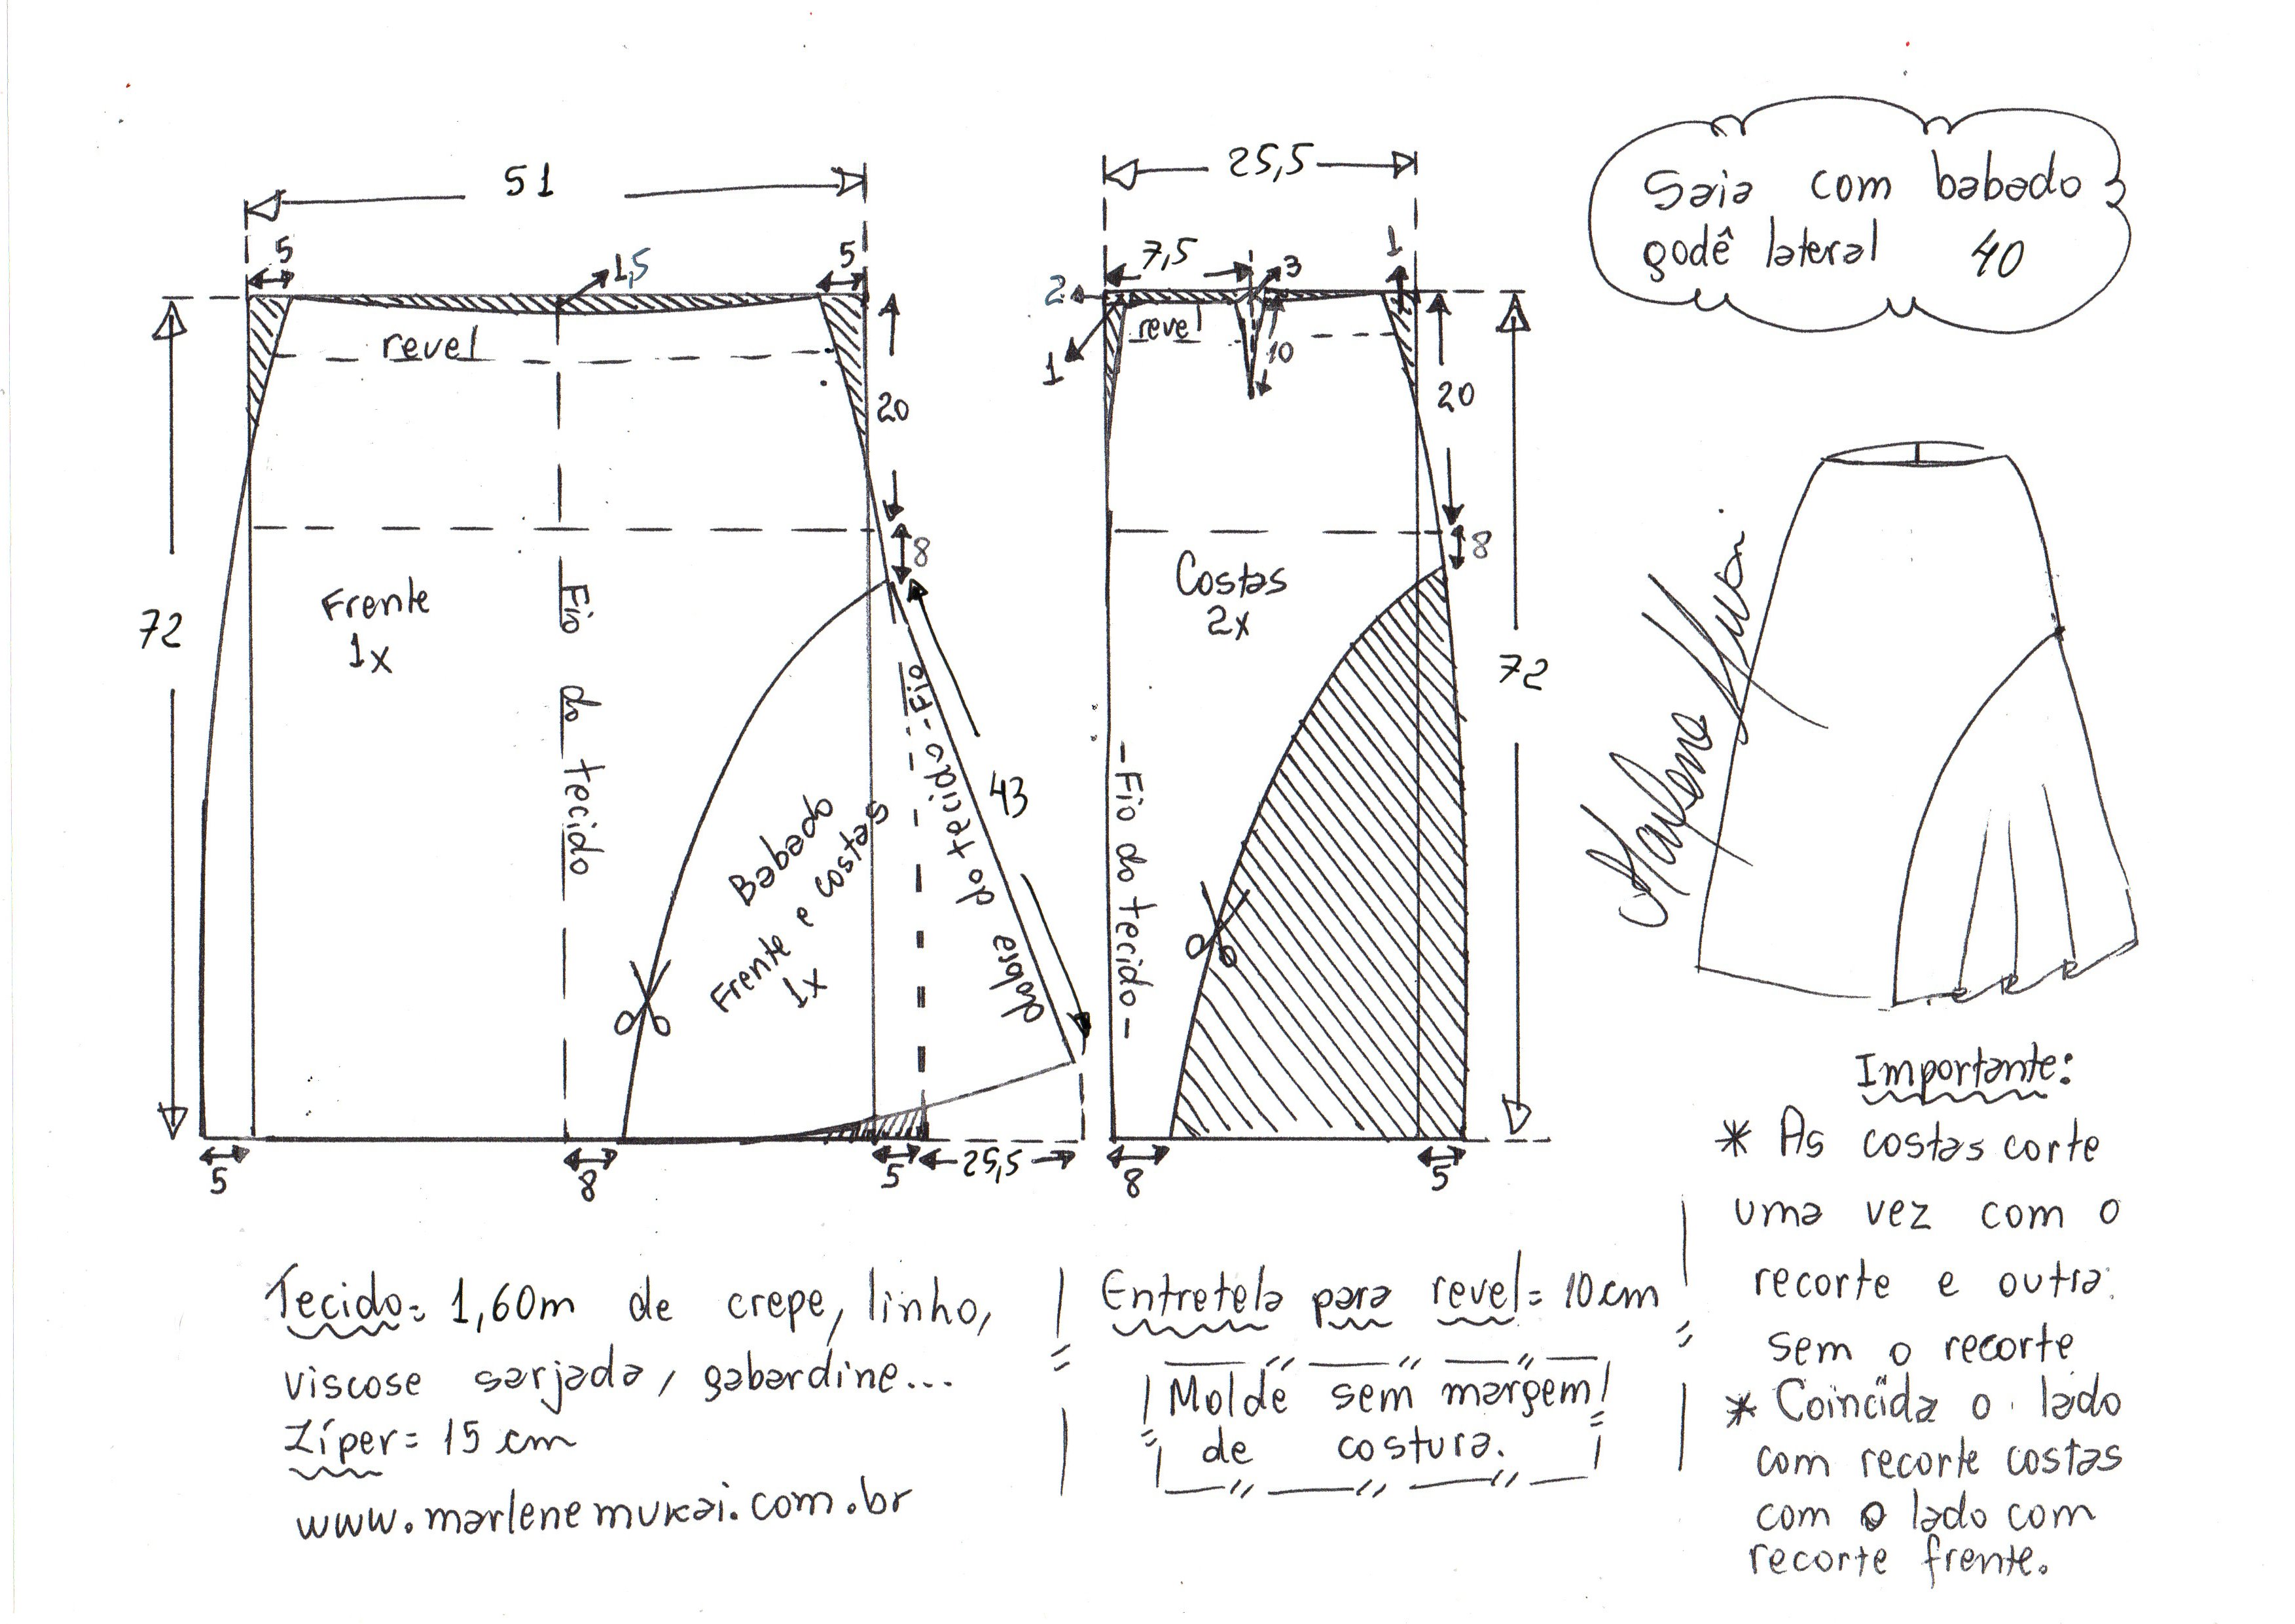 Saia com babado
godê lateral 40
51
5
1,5
5
revel
20
8
72
Frente
1x
Fio do tecido
Babado
Frente e costas
1x
Fio do tecido
dobre
43
5
8
5
25,5
25,5
7,5
3
1
2
revel
1
10
20
8
Costas
2x
Fio do tecido
72
8
5
Marlene Mukai
Importante:
* As costas corte
uma vez com o
recorte e outra
sem o recorte
* Coincida o lado
com recorte costas
com o lado com
recorte frente.
Tecido= 1,60m de crepe, linho,
viscose sarjada, gabardine...
Zíper= 15 cm
www.marlenemukai.com.br
Entretela para revel= 10cm
Molde sem margem
de costura.